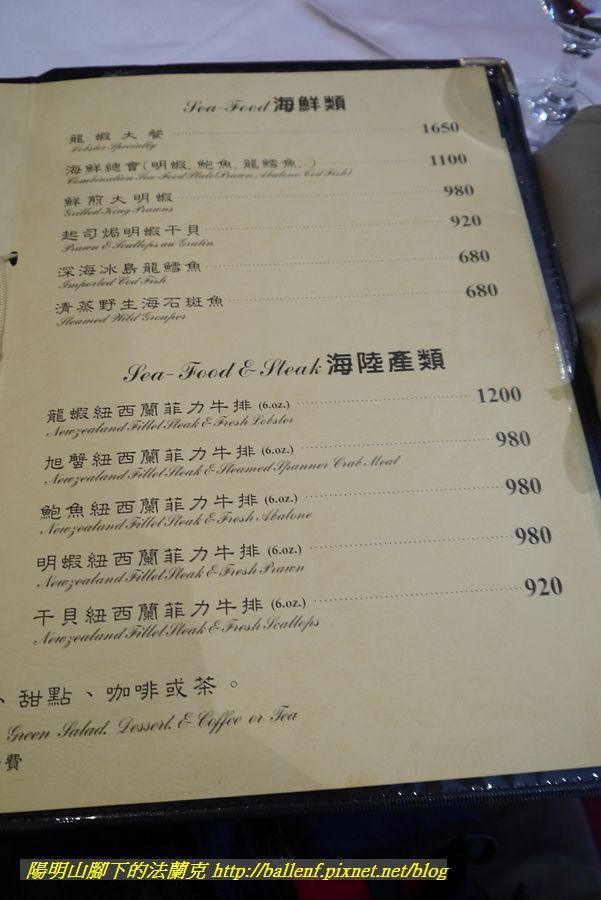 Sea-Food 海鮮類
龍蝦大餐 1650
Lobster Specialty
海鮮總會(明蝦、鮑魚、龍鱈魚、) 1100
Combination Sea-Food Plate(Prawn, Abalone, Cod Fish)
鮮煎大明蝦 980
Grilled King Prawns
起司焗明蝦干貝 920
Prawn & Scallops au Gratin
深海冰島龍鱈魚 680
Imported Cod Fish
清蒸野生海石斑魚 680
Steamed Wild Grouper
Sea-Food & Steak 海陸產類
龍蝦紐西蘭菲力牛排 (6.oz.) 1200
Newzealand Fillet Steak & Fresh Lobster
旭蟹紐西蘭菲力牛排 (6.oz.) 980
Newzealand Fillet Steak & Steamed Spanner Crab Meat
鮑魚紐西蘭菲力牛排 (6.oz.) 980
Newzealand Fillet Steak & Fresh Abalone
明蝦紐西蘭菲力牛排 (6.oz.) 980
Newzealand Fillet Steak & Fresh Prawn
干貝紐西蘭菲力牛排 (6.oz.) 920
Newzealand Fillet Steak & Fresh Scallops
、甜點、咖啡或茶。
Green Salad, Dessert, & Coffee or Tea
費
陽明山腳下的法蘭克 http://ballenf.pixnet.net/blog